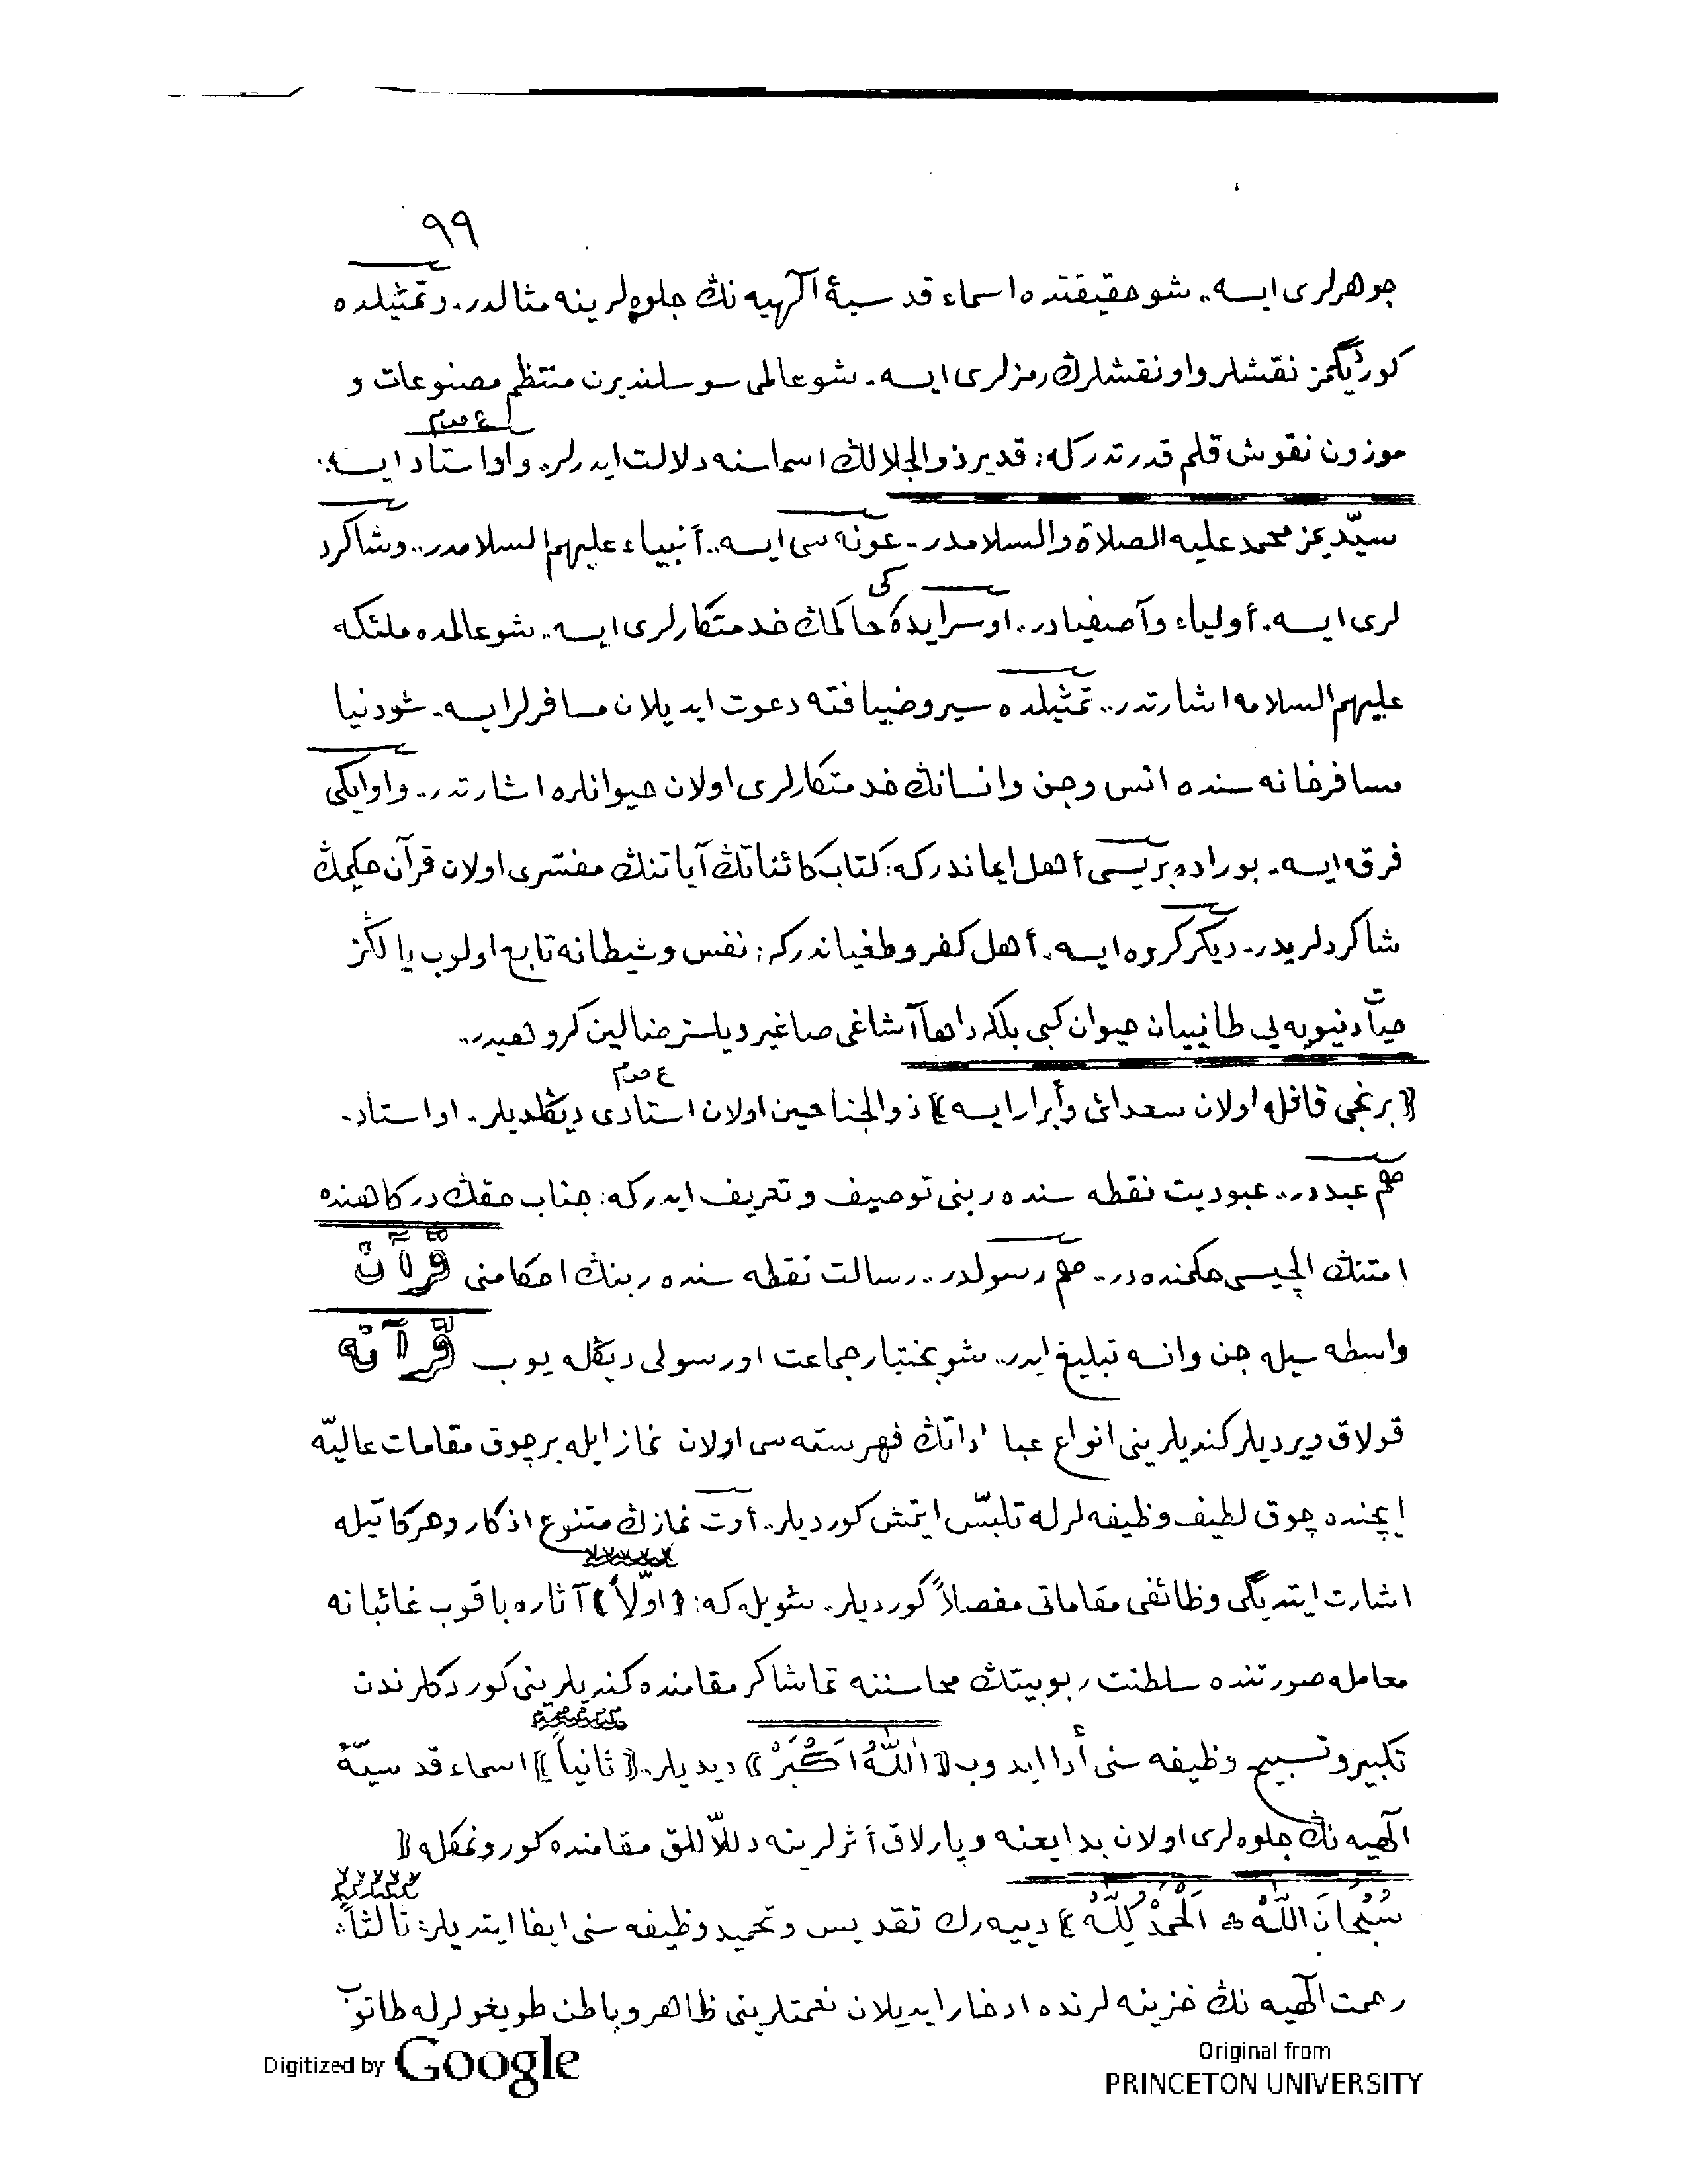 ٩٩
جوهرلرى ايسه.. شو حقيقتده اسماء قدسيۀ الٓهيه نڭ جلوه لرينه مثالدر. و تمثيلده
كورديگمز نقشلر و او نقشلرڭ رمزلرى ايسه. شو عالمى سوسلنديرن منتظم مصنوعات و
موزون نقوش قلم قدرتدركه: قدير ذوالجلالڭ اسماسنه دلالت ايدرلر. و او استاد ايسه:
ع ص م
سيّديمز محمد عليه الصلاة والسلامدر. عونه سى ايسه.. أنبياء عليهم السلامدر.. و شاكرد
لرى ايسه. أولياء و آصفيادر.. او سرايده كى حاكمڭ خدمتكارلرى ايسه.. شو عالمده ملئكه
عليهم السلامه اشارتدر.. تمثيلده سير و ضيافته دعوت ايديلان مسافرلر ايسه. شو دنيا
مسافرخانه سنده انس و جن و انسانڭ خدمتكارلرى اولان حيوانلره اشارتدر.. و او ايكى
فرقه ايسه. بوراده بريسى أهل ايماندركه: كتاب كائناتڭ آياتنڭ مفسّرى اولان قرآن حكيمڭ
شاكردلريدر. ديكر كروه ايسه. أهل كفر و طغياندركه: نفس و شيطانه تابع اولوب يالڭز
حيات دنيويه يى طانييان حيوان كبى بلكه داها آشاغى صاغير ديلسز ضالين كروهيدر..
⟪برنجى قافله اولان سعدائ و أبرار ايسه⟫ ذوالجناحين اولان استادى ديڭلديلر. او استاد.
ع ص م
هم عبددر.. عبوديت نقطه سنده ربنى توصيف و تعريف ايدركه: جناب حقڭ دركاهنده
امتنڭ ايلچيسى حكمنده در.. هم رسولدر.. رسالت نقطه سنده ربنڭ احكامنى قُرآن
واسطه سيله جن و انسه تبليغ ايدر.. شو بختيار جماعت او رسولى ديڭله يوب قُرآنه
قولاق ويرديلر كنديلرينى انواع عباداتڭ فهرسته سى اولان نماز ايله بر چوق مقامات عاليّه
ايچنده چوق لطيف وظيفه لرله تلبّس ايتمش كورديلر.. أوت نمازڭ متنوع اذكار و هركاتيله
اشارت ايتديگى وظائفى مقاماتى مفصلاً كورديلر. شويله كه: ⟪اوّلاً⟫ آثاره باقوب غائبانه
معامله صورتنده سلطنت ربوبيتڭ محاسننه تماشاكر مقامنده كنديلرينى كوردكلرندن
تكبير و تسبيح وظيفه سنى أدا ايدوب ⟪اَللّٰهُ اَكْبَرْ⟫ ديديلر. ⟪ثانياً⟫ اسماء قدسيّۀ
الٓهيه نڭ جلوه لرى اولان بدايعنه و پارلاق أثرلرينه دللاّللق مقامنده كورونمكله ⟪
سُبْحَانَ اللّٰهْ اَلْحَمْدُ لِلّٰهْ⟫ دييه رك تقديس و تحميد وظيفه سنى ايفا ايتديلر: ثالثاً:
رحمت الٓهيه نڭ خزينه لرنده ادخار ايديلان نعمتلرينى ظاهر و باطن طويغولرله طاتوب
Digitized by Google
Original from
PRINCETON UNIVERSITY